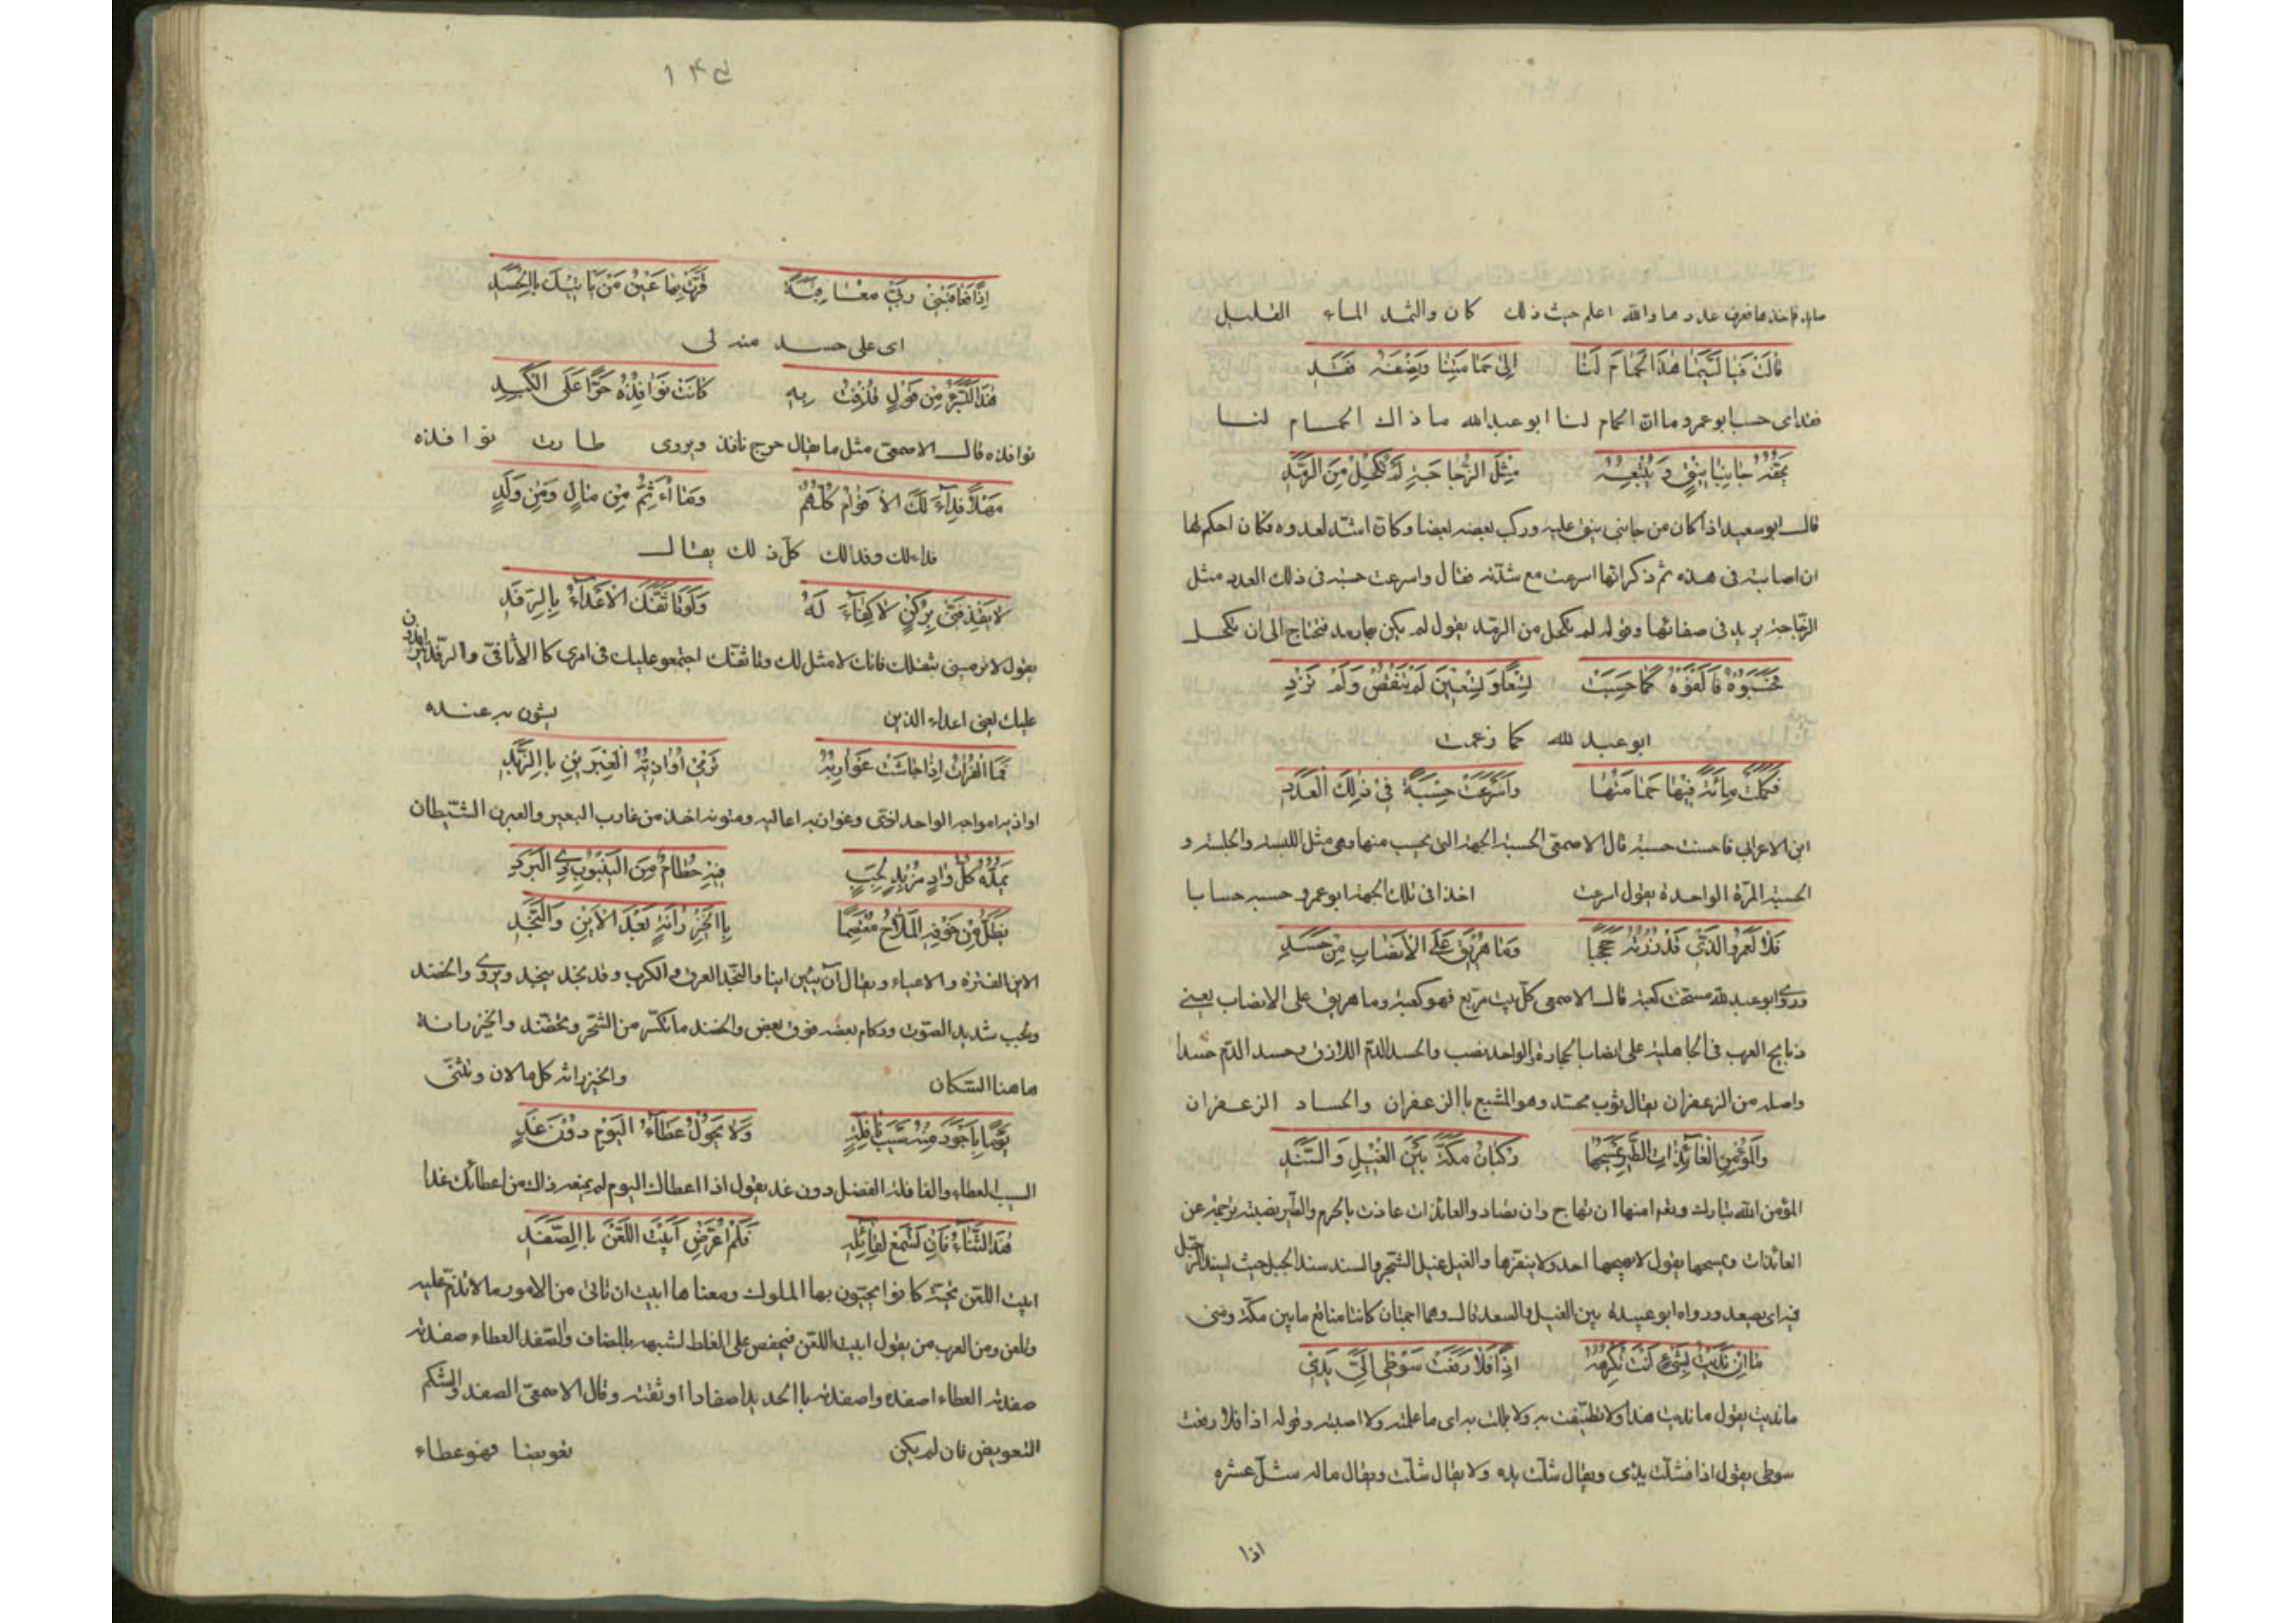 صايد فاخذها فعرف عددها والله اعلم حيث ذلك كان والثمد الماء القليل
قَالَتْ فَيَا لَيْتَمَا هٰذَا الْحَمَامَ لَنَا إِلىٰ حَمَامَتِنَا وَنِصْفَهُ فَقَدِ
فقد اى حسب ابو عمرو ما ان الحمام لنا ابو عبدالله ما ذاك الحمام لنا
يَحُفُّهُ جَانِبَا نِيْقٍ وَيُتْبِعُهُ مِثْلَ الزُّجَاجَةِ لَمْ تُكْحَلْ مِنَ الرَّمَدِ
قال ابو سعيد اذا كان من جانبى نيق عليه وركب بعضه بعضا وكان اشد لعدوه فكان احكم لها
ان اصابته فى هذه ثم ذكر انها اسرعت مع شدته فقال واسرعت حسبة فى ذلك العدد مثل
الزجاجة يريد فى صفائها وقوله لم تكحل من الرمد يقول لم يكن بها رمد فتحتاج الى ان تكحل
فَحَسَّبُوْهُ فَأَلْفَوْهُ كَمَا حَسِبَتْ تِسْعًا وَتِسْعِيْنَ لَمْ تَنْقُصْ وَلَمْ تَزِدِ
ابو عبد لله كما زعمت
فَكَمَّلَتْ مِائَةً فِيْهَا حَمَامَتُهَا وَأَسْرَعَتْ حِسْبَةً فِىْ ذٰلِكَ الْعَدَدِ
ابن الاعرابى فاحسنت حسبة قال الاصمعى الحسبة الجهة التى يحسب منها وهى مثل اللبسة والجلسة و
الحسبة المرّة الواحدة يقول اسرعت اخذا فى تلك الجهة ابو عمرو حسبه حسابا
فَلَا لَعَمْرُ الَّذِىْ قَدْ زُرْتُهُ حِجَجًا وَمَا هُرِيْقَ عَلَى الْأَنْصَابِ مِنْ جَسَدِ
وروى ابو عبد لله مسحت كعبته قال الاصمعى كل بيت مربع فهو كعبة وما هريق على الانصاب يعنى
ذبايح العرب فى الجاهلية على انصاب الحجارة والواحد نصب والجسد الدم اللازق وجسد الدم جسدا
واصله من الزعفران يقال ثوب مجسد وهو المشبع باالزعفران والجساد الزعفران
وَالْمُؤْمِنِ الْعَائِذَاتِ الطَّيْرِ يَمْسَحُهَا رُكْبَانُ مَكَّةَ بَيْنَ الْغَيْلِ وَالسَّنَدِ
المؤمن الله تبارك وتعم امنها ان تهاج وان تصاد والعائذات عاذت بالحرم والطير نصبته ترجمة عن
العائذات ويمسحها يقول لا يهيجها احد ولا ينفرها والغيل غيل الشجر والسند سند الجبل حيث ليسند الرجل
فيه اى يصعد ورواه ابو عبيدة بين الغيل والسعد قال وهما اجمتان كانتا مناقع ما بين مكة ومنى
مَا إِنْ نَدِيْتُ بِشَىْءٍ أَنْتَ تَكْرَهُهُ إِذًا فَلَا رَفَعَتْ سَوْطِى إِلَىَّ يَدِىْ
ما نديت يقول ما نديت هذا ولا تنطقت به ولا بللت به اى ما علمته ولا اصبته وقوله اذا فلا رفعت
سوطى يقول اذا فشلت يدى ويقال شلت يده ولا يقال شلت ويقال ماله شل عشره
اذا
۱۴۵
إِذًا فَعَاقَبَنِىْ رَبِّىْ مُعَاقَبَةً قَرَّتْ بِهَا عَيْنُ مَنْ يَاتِيْكَ بِاالْحَسَدِ
اى على حسد منه لى
هٰذَا لِأُبْرَأَ مِنْ قَوْلٍ قُذِفْتُ بِهِ كَانَتْ نَوَافِذُهُ حَرًّا عَلَى الْكَبِدِ
نوافذه قال الاصمعى مثل ما يقال جرح نافذ ويروى طارت نوافذه
مَهْلًا فِدَآءً لَكَ الْأَقْوَامُ كُلُّهُمْ وَمَا أُثَمِّرُ مِنْ مَالٍ وَمِنْ وَلَدٍ
فداء لك وفدا لك كلّ ذلك يقال
لَا تَقْذِفَنِّىْ بِرُكْنٍ لَا كِفَآءَ لَهُ وَلَوْ تَأَثَّفَكَ الْأَعْدَآءُ بِالرِّفَدِ
يقول لا ترمينى بثقلك فانك لا مثل لك وتاثفك اجتمعو عليك فى امرى كا الأثافى والرّفد يترافدون
عليك يعنى اعداء الذين يشون به عنده
فَمَا الْفُرَاتُ إِذَا جَاشَتْ غَوَارِبُهُ تَرْمِىْ أَوَاذِيُّهُ الْعِبْرَيْنِ بِاالزَّبَدِ
اواذيه امواجه الواحد اذى وغواربه اعاليه ومتونه اخذ من غارب البعير والعبرن الشّيطان
يَمُدُّهُ كُلُّ وَادٍ مُزْبِدٍ لَجِبٍ فِيْهِ حُطَامٌ مِنَ الْيَنْبُوْتِ وَالْبَرَدِ
يَظَلُّ مِنْ خَوْفِهِ الْمَلَّاحُ مُعْتَصِمًا بِاالْخَيْزُرَانَةِ بَعْدَ الْأَيْنِ وَالنَّجَدِ
الاين الفترة والاعياء ويقال آن يئين اينا والنجد العرق والكرب وقد نجد ينجد ويروى والخضد
ولجب شديد الصوت وركام بعضه فوق بعض والخضد ما تكسر من الشجر وتخضد والخيزرانة
هاهنا السّكان والخيزرانه كل ما لان وتثنّى
يَوْمًا بِأَجْوَدَ مِنْهُ سَيْبَ نَافِلَةٍ وَلَا يَحُوْلُ عَطَآءُ الْيَوْمِ دُوْنَ غَدٍ
السيب العطاء والنافلة الفضل دون غد يقول اذا اعطاك اليوم لم يمنعه ذاك من اعطائك غدا
هٰذَا الثَّنَاءُ فَإِنْ تَسْمَعْ لِقَائِلِهِ فَلَمْ أُعَرِّضْ أَبَيْتَ اللَّعْنَ بِاالصَّفَدِ
ابيت اللعن تحية كانوا يحيون بها الملوك ومعناها ابيت ان تاتى من الامور ما لا تذم عليه
وتلعن ومن العرب من يقول ابيت اللعن فيخفض على الغلط لشبهه بالمضاف والصّفد العطاء صفدته
صفدته العطاء اصفده واصفدته باالحديد اصفادا اوثقته وقال الاصمعىّ الصفد والشكم
التعويض فان لم يكن تعويضا فهو عطاء